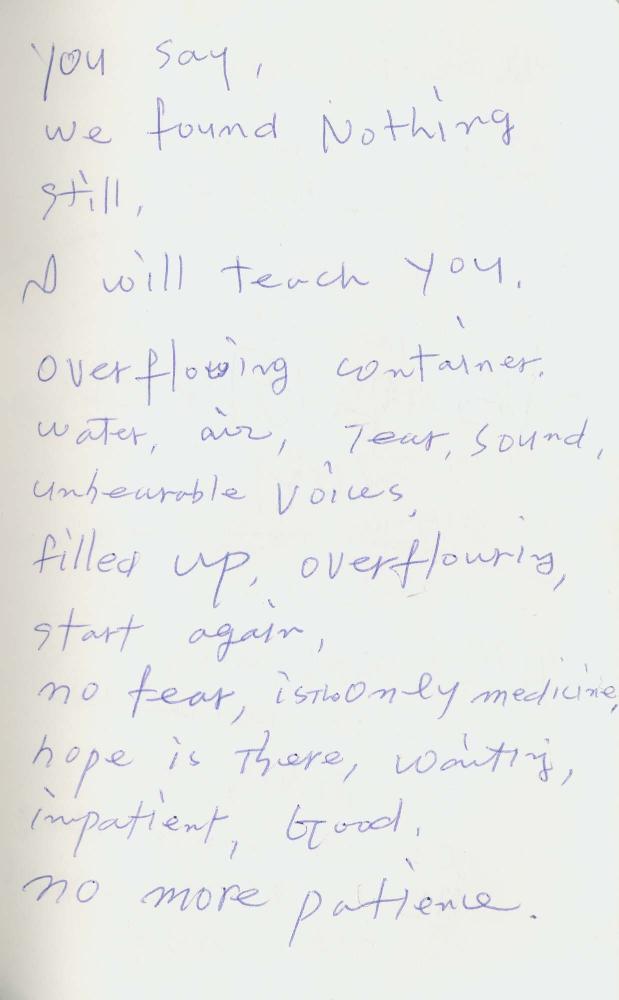 you say,
we found Nothing
still,
I will teach you.
overflowing container.
water, air, Tear, sound,
unhearable voices,
filled up, overflouring,
start again,
no fear, is the only medicine,
hope is There, waiting,
impatient, Good.
no more patience.